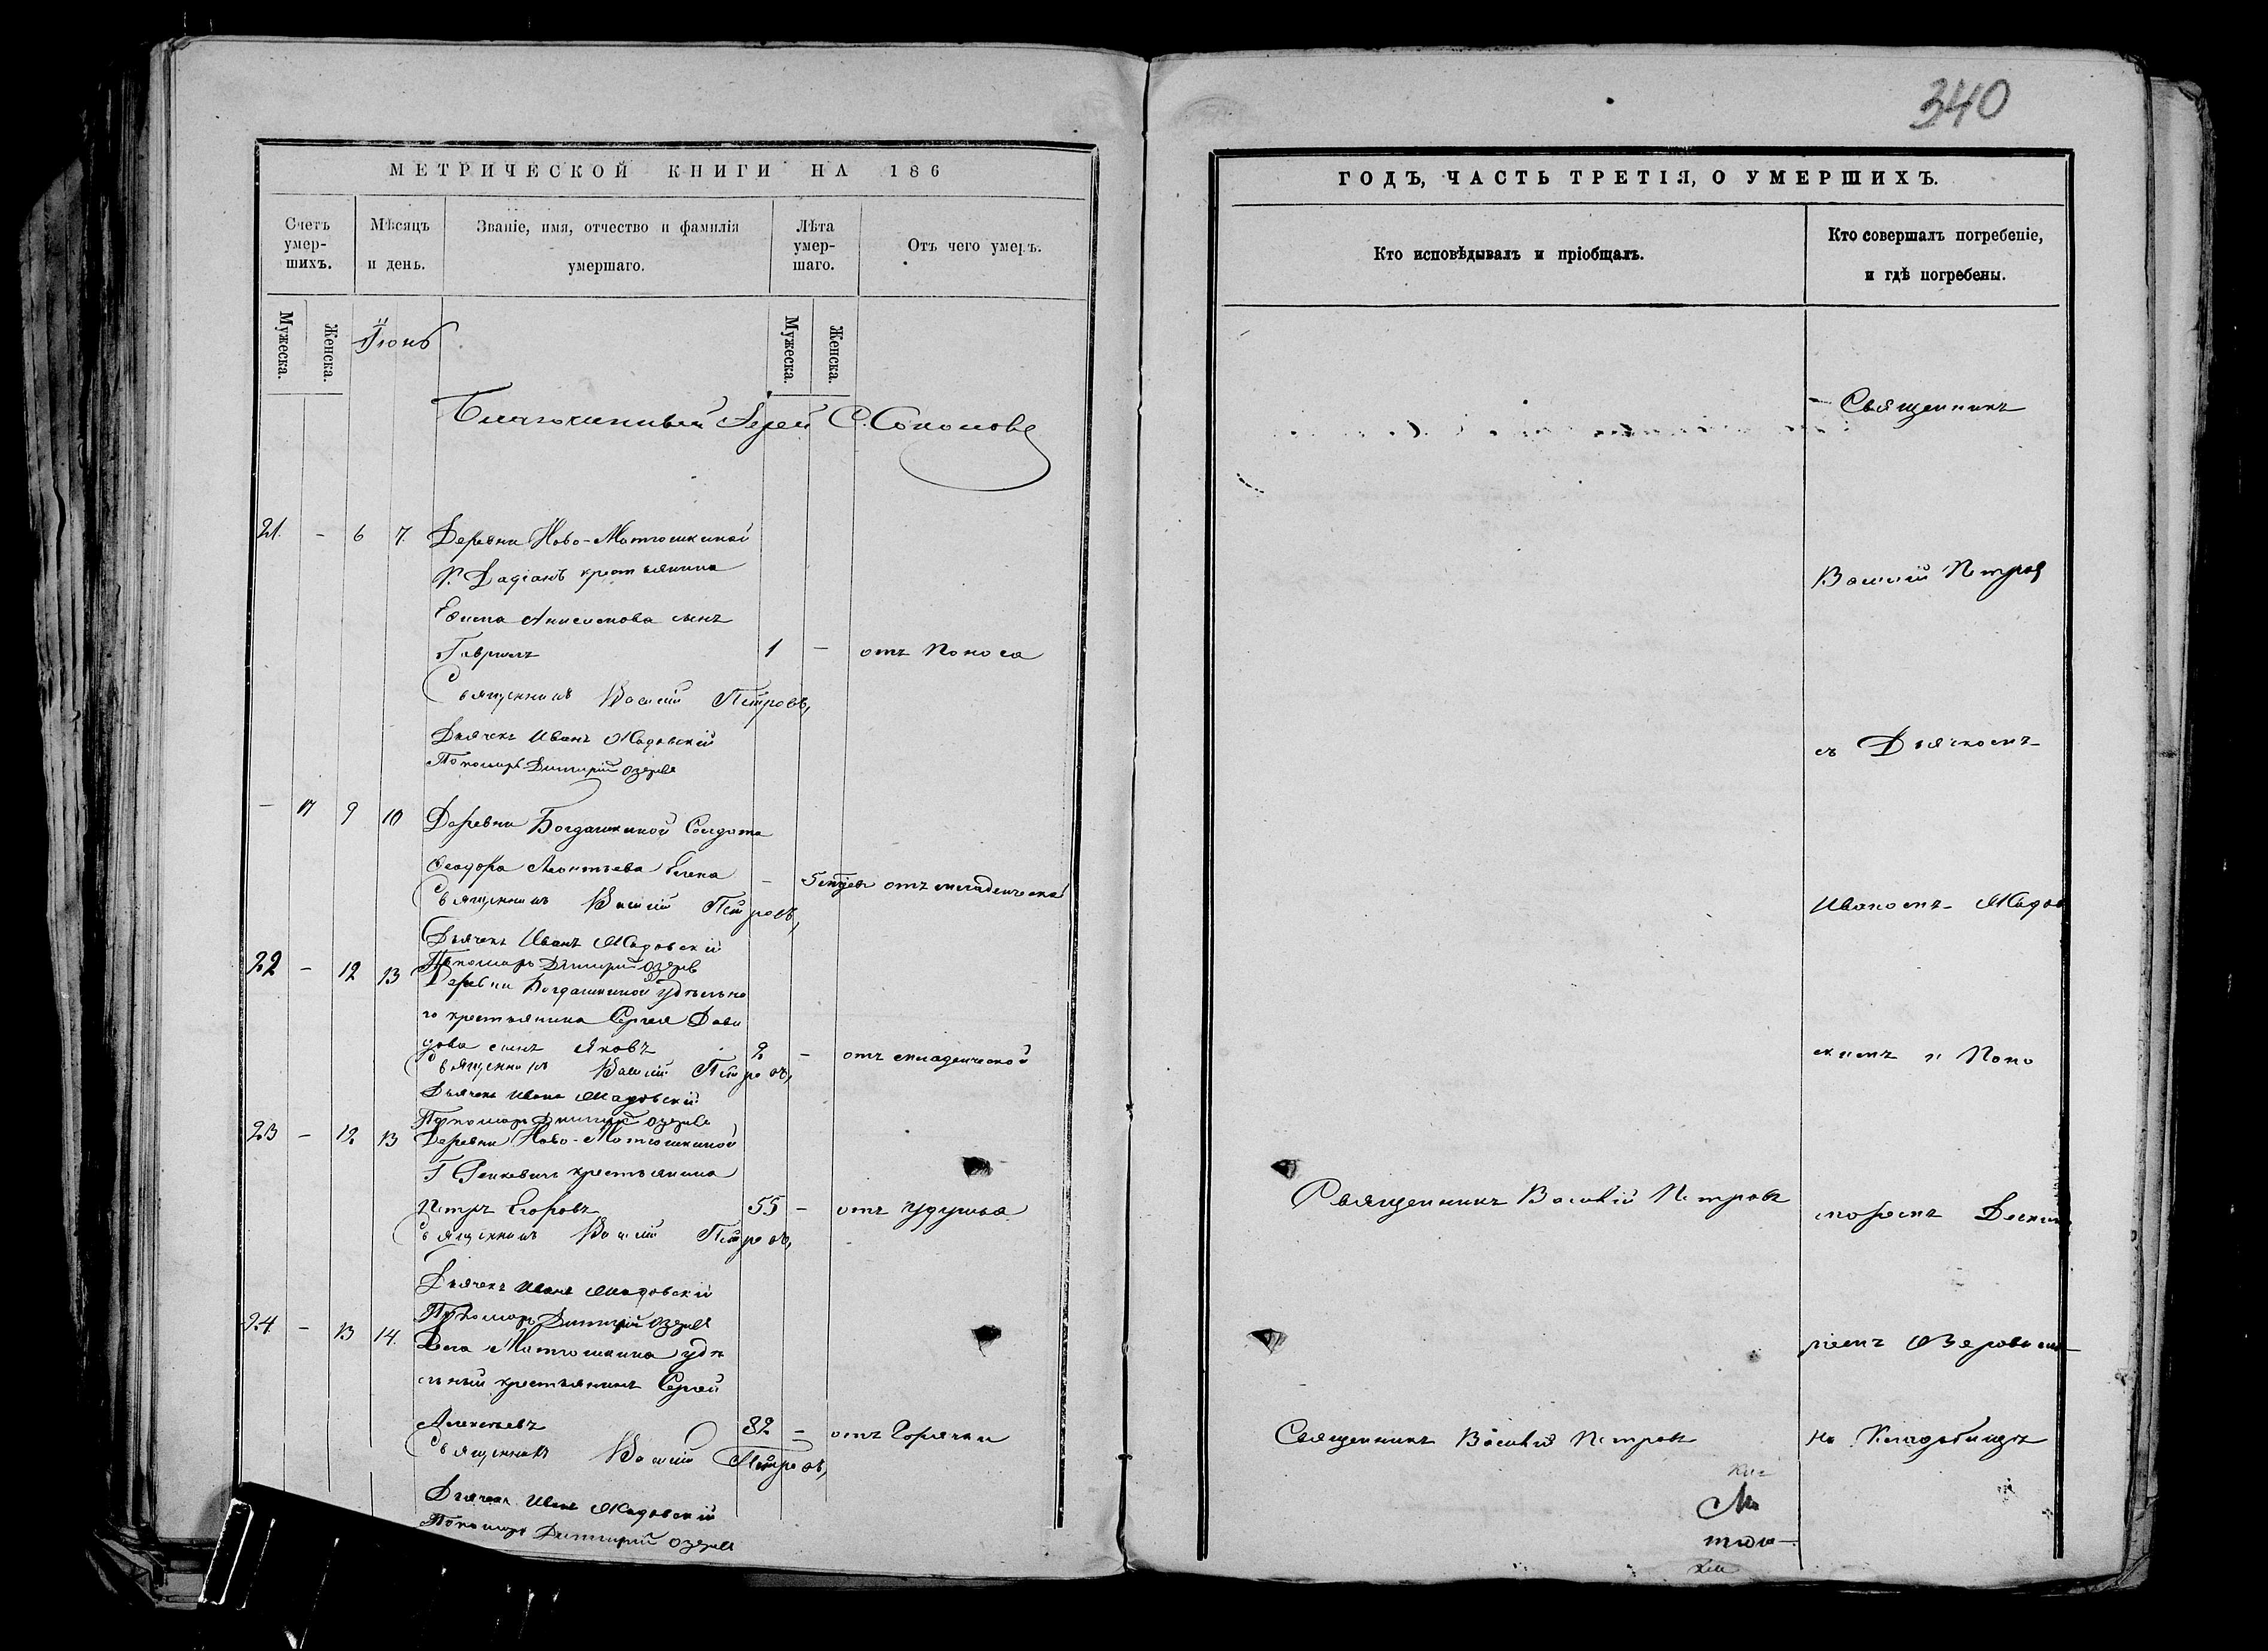 340
МЕТРИЧЕСКОЙ КНИГИ НА 186
Счетъ умер-шихъ.
Мѣсяцъ и день.
Званіе, имя, отчество и фамилія умершаго.
Лѣта умер-шаго.
Отъ чего умеръ.
Мужеска.
Женска.
Мужеска.
Женска.
Іюнь
Благочинный Іерей С. Соколовъ
21. - 6 7. Деревни Ново-Матюшкиной
крестьянина
сынъ
Гаврiилъ 1 - отъ поноса
Священникъ Василій Петровъ,
Дьячекъ Иванъ Жадовскій
Пономарь Димитрій Озеровъ
- 17 9 10 Деревни Богдашкиной Солдата
Ѳеодора Леонтьева Елена - 5 отъ младенческой
Священникъ Василій Петровъ,
Дьячекъ Иванъ Жадовскій
Пономарь Димитрій Озеровъ
22 - 12 13 Деревни Богдашкиной удѣльна
го крестьянина Сергея Дави
дова сынъ Яковъ 2 - отъ младенческой
Священникъ Василій Петровъ,
Дьячекъ Иванъ Жадовскій
Пономарь Димитрій Озеровъ
23 - 12 13 Деревни Ново-Матюшкиной
крестьянина
Петръ Егоровъ 55 - отъ удушья
Священникъ Василій Петровъ,
Дьячекъ Иванъ Жадовскій
Пономарь Димитрій Озеровъ
24 - 13 14. Села Матюшкина удѣ
льный крестьянинъ Сергей
Алексеевъ 82 - отъ Горячки
Священникъ Василій Петровъ,
Дьячекъ Иванъ Жадовскій
Пономарь Димитрій Озеровъ
ГОДЪ, ЧАСТЬ ТРЕТІЯ, О УМЕРШИХЪ.
Кто исповѣдывалъ и пріобщалъ.
Кто совершалъ погребеніе, и гдѣ погребены.
Священникъ
Василій Петровъ
съ Дьячкомъ
Иваномъ Жадов
скимъ и Поно
Священникъ Василій Петровъ
маремъ Димит
ріемъ Озеровымъ
Священникъ Василій Петровъ
на Кладбищѣ
Ма
тюш-